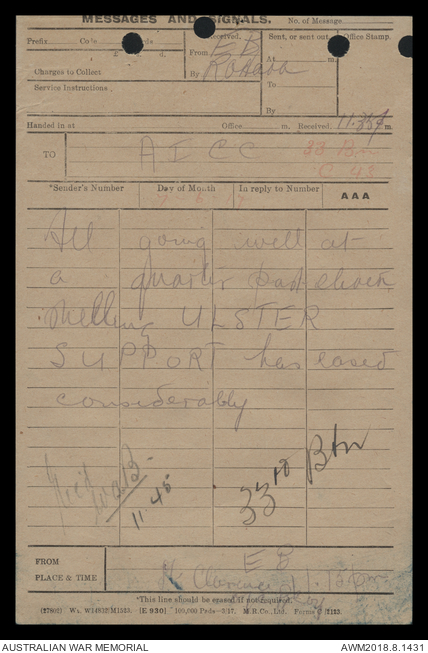 MESSAGES AND SIGNALS. No. of Message
Prefix Code Words Received. Sent, or sent out Office Stamp.
£ s. d. From E B At m.
Charges to Collect By To
Service Instructions. By
Handed in at Office m. Received. 11.35 p m.
TO A I C C 33 Bn
C 48
*Sender's Number Day of Month In reply to Number AAA
7 6 17
All going well at
a quarter past eleven
shelling ULSTER
SUPPORT has eased
considerably
33rd Btn
11.45
FROM E B
PLACE & TIME 11.15 pm
*This line should be erased if not required.
(27802) Wt. W14912/M1523. [E 930] 100,000 Pads—5/17. M.R.Co., Ltd. Forms C/2123.
AUSTRALIAN WAR MEMORIAL AWM2018.8.1431